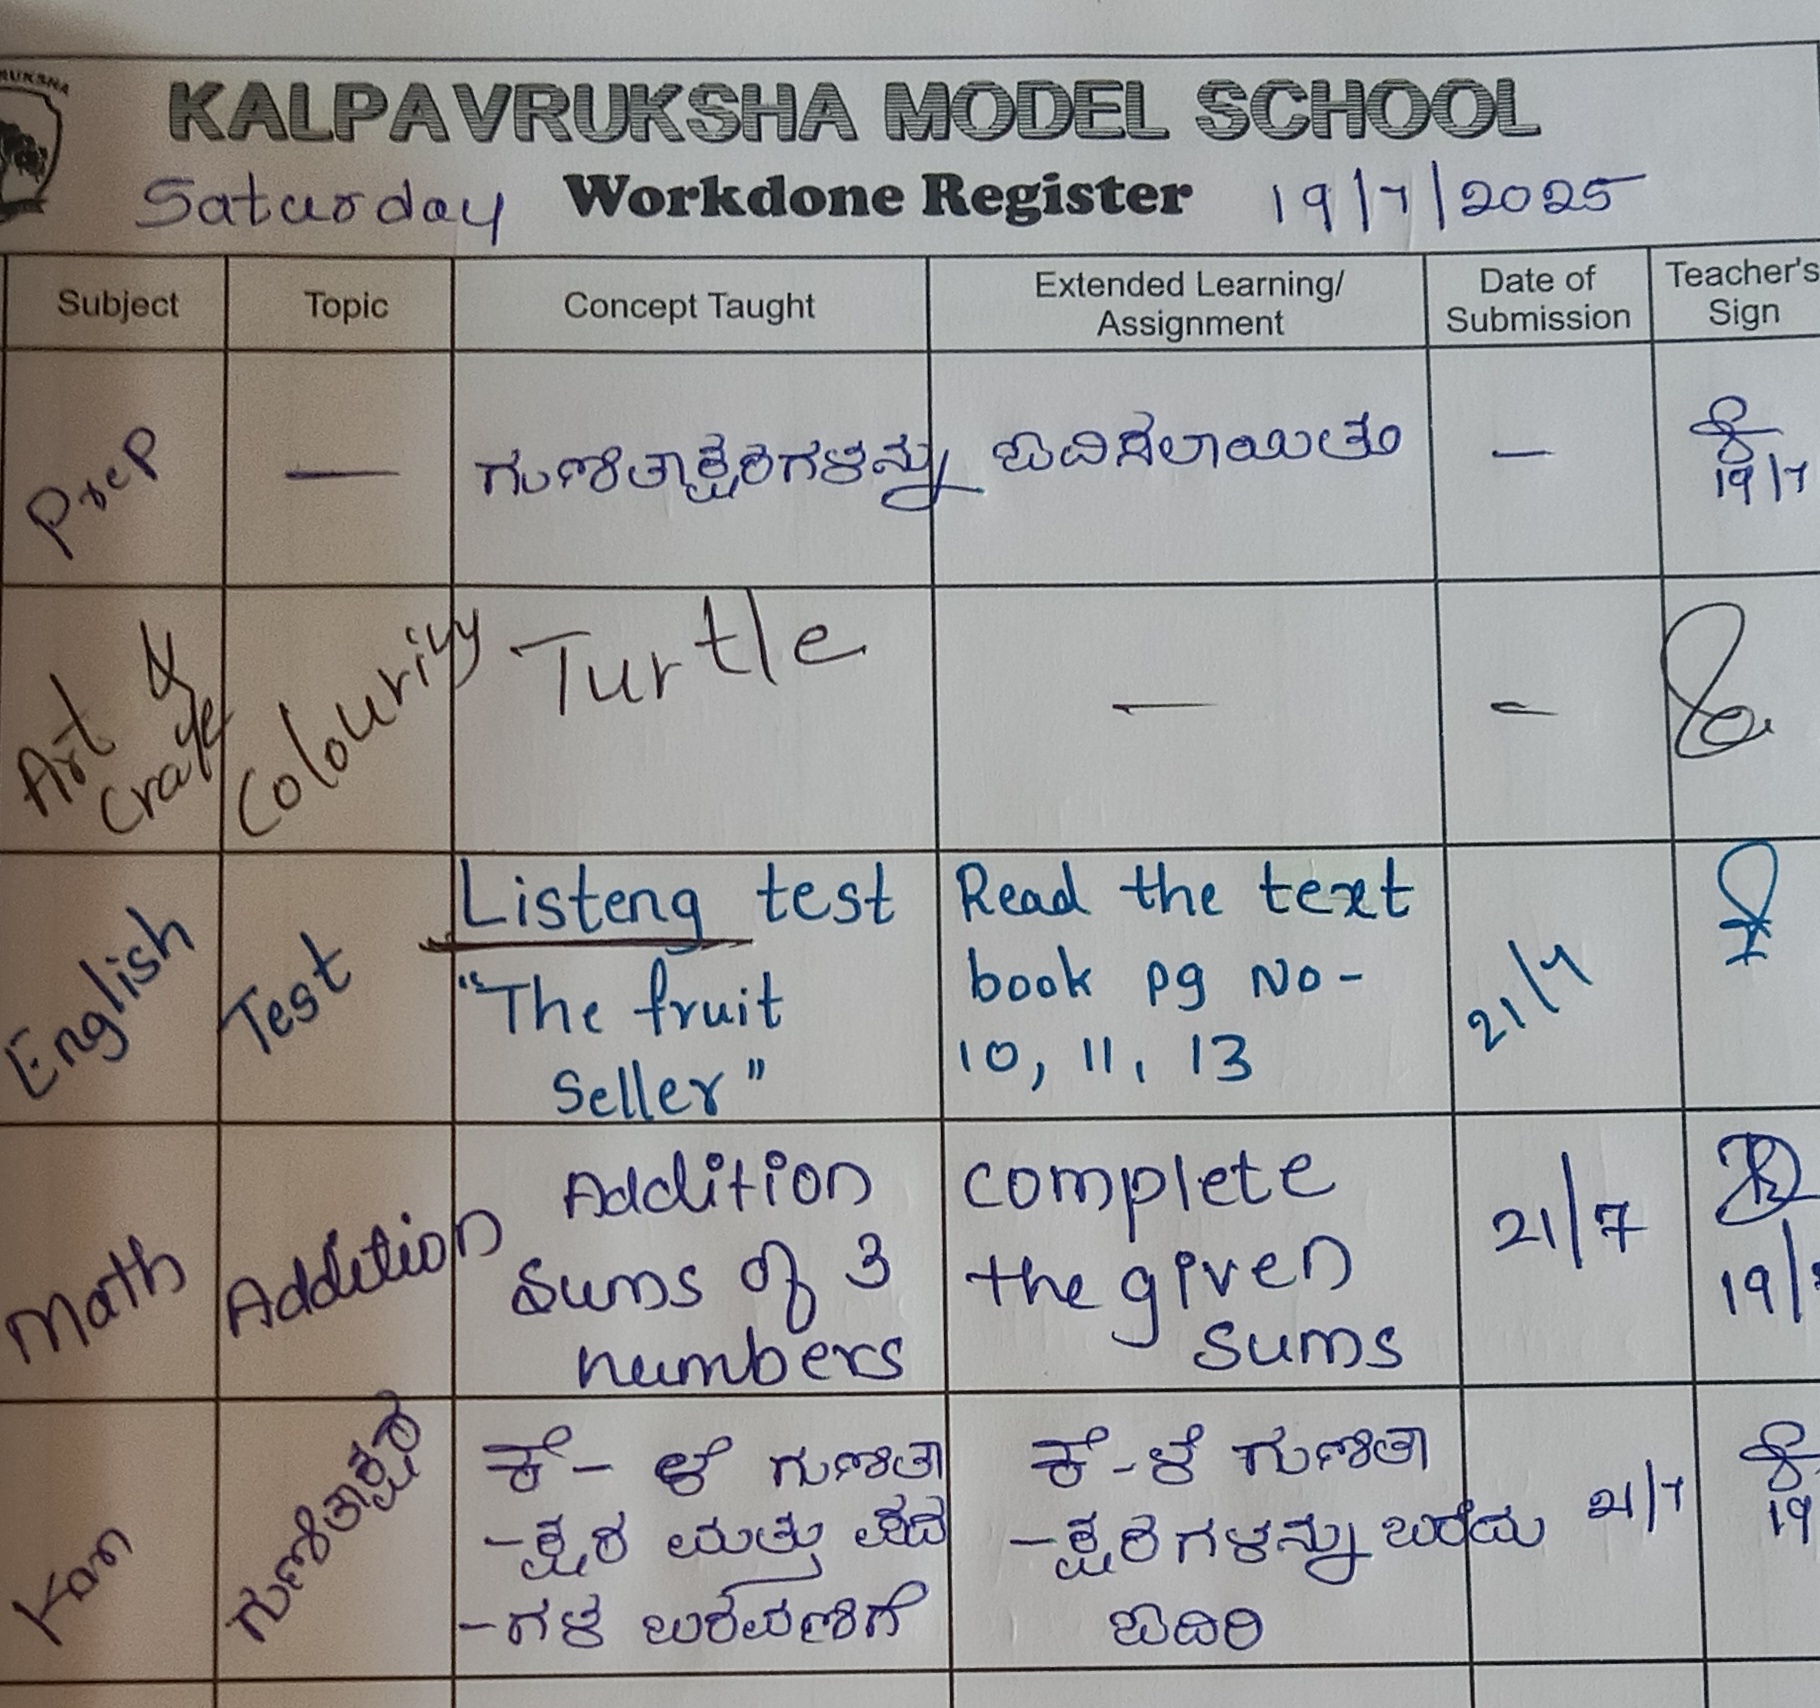 RUKSHA
KALPAVRUKSHA MODEL SCHOOL
Saturday Workdone Register 19/7/2025
Subject Topic Concept Taught Extended Learning/ Assignment Date of Submission Teacher's Sign
Prep — ಗುಣಿತಾಕ್ಷರಿಗಳನ್ನು ಓದಿಸಲಾಯಿತು — 19/7
Art & Craft Colouring Turtle — –
English Test Listeng test Read the text 21/7
"The fruit book pg No-
Seller" 10, 11, 13
Math Addition Addition complete 21/7
Sums of 3 the given 19/
numbers sums
Kan ಗುಣಿತಾಕ್ಷರ ಕೆ - ಳೆ ಗುಣಿತಾ ಕೆ - ಳೆ ಗುಣಿತಾ
-ಕ್ಷರ ಮತ್ತು ಪದ -ಕ್ಷರಿಗಳನ್ನು ಬರೆದು 21/7 19
-ಗಳ ಬರೆವಣಿಗೆ ಓದಿರಿ